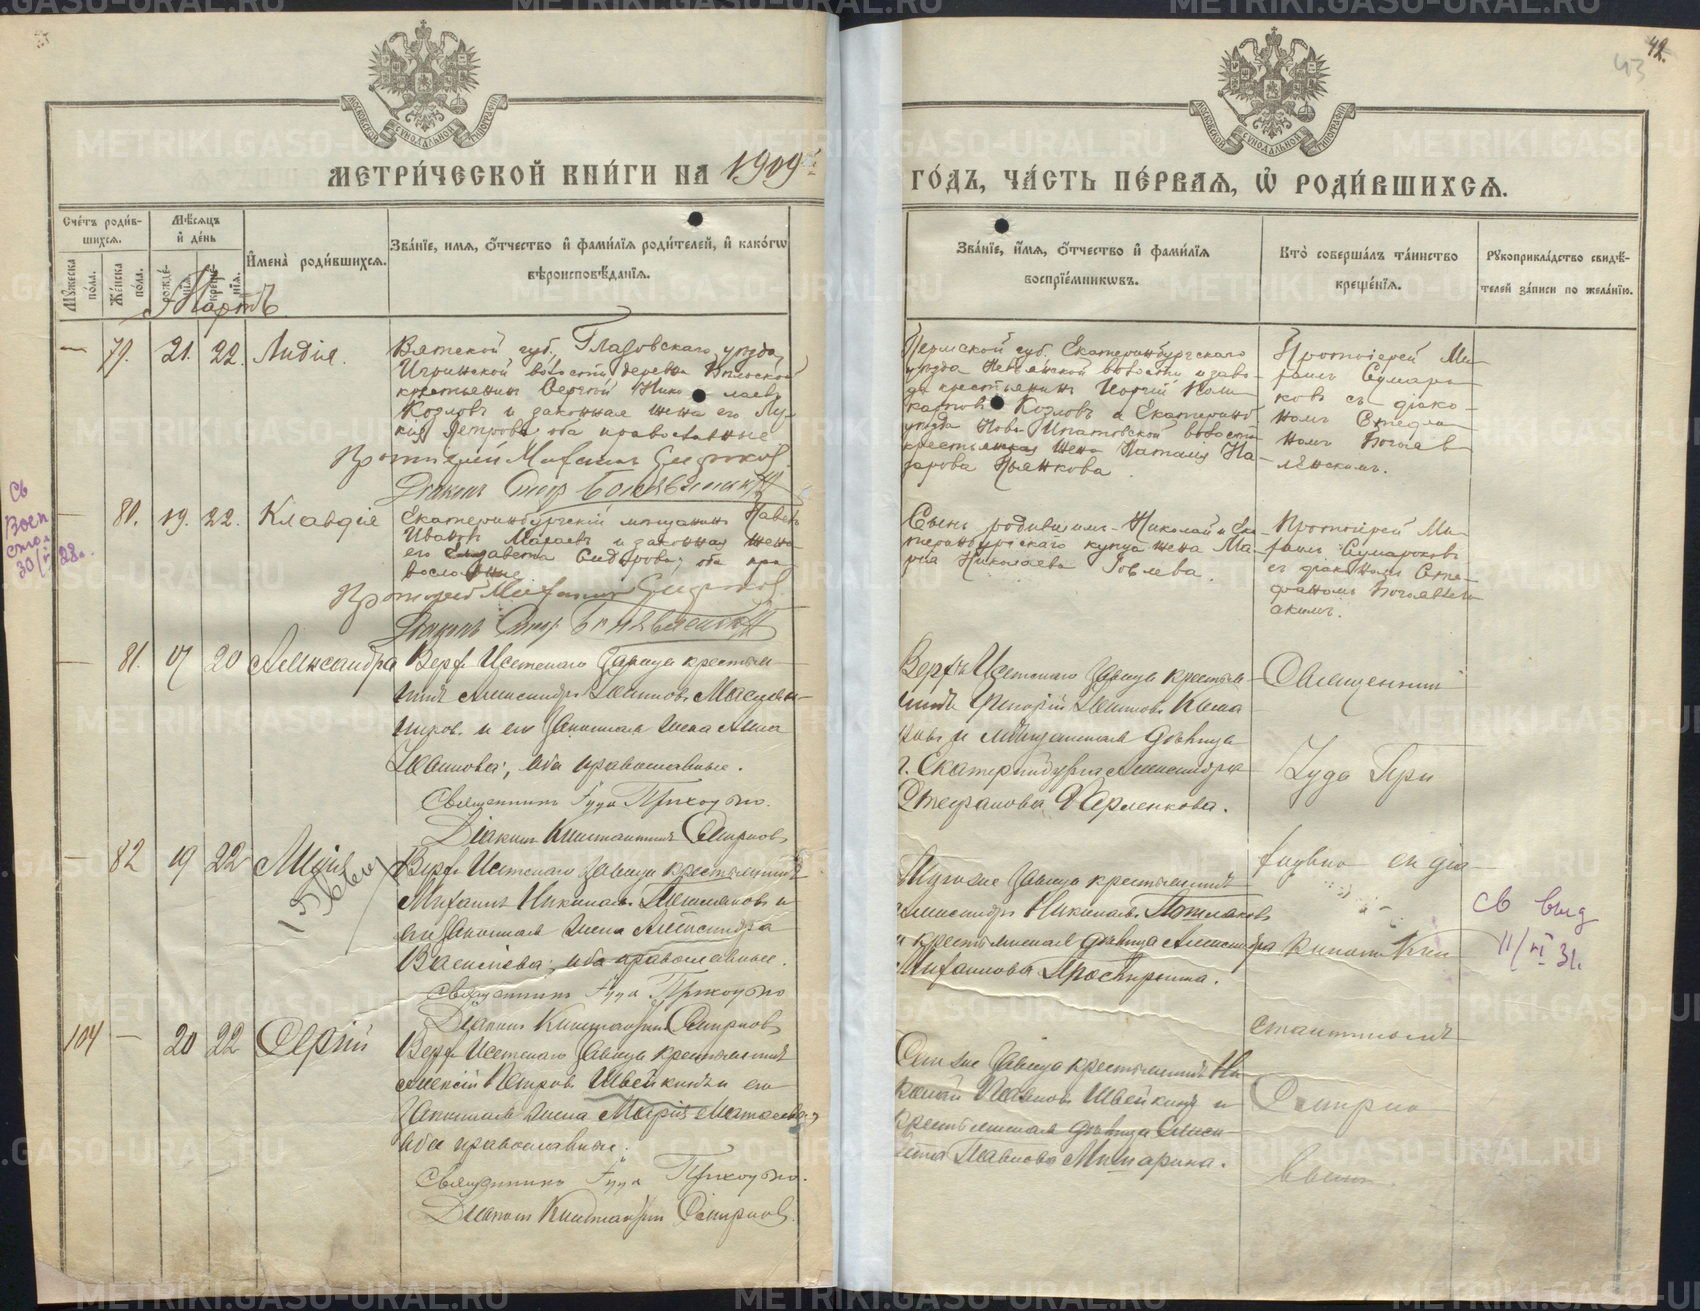 42.
43
МОСКОВСКОЙ СУНОДАЛЬНОЙ ТИПОГРАФІИ
МОСКОВСКОЙ СУНОДАЛЬНОЙ ТИПОГРАФІИ
МЕТРИ́ЧЕСКОЙ КНИ́ГИ НА 1909
ГО́ДЪ, ЧА́СТЬ ПЕ́РВАЯ, Ѡ РОДИ́ВШИХСЯ.
Сче́тъ роди́вшихся.
Мꙋ́жеска по́ла.
Же́нска по́ла.
Мѣ́сяцъ и де́нь
рожде́нія.
креще́нія.
Имена̀ роди́вшихся.
Зва́ніе, имя, ѻ́тчество и фами́лія роди́телей, и како́гѡ
вѣроисповѣ́данія.
Зва́ніе, и́мя, ѻ́тчество и фами́лія
воспріе́мникѡвъ.
Кто̀ соверша́лъ та́инство
креще́нія.
Рꙋкоприкла́дство свидѣ́-
телей за́писи по жела́нію.
Мартъ
— 79. 21. 22. Лидія.
Вятской губ, Глазовскаго уѣзда,
Игринской волости деревни
крестьянинъ Сергѣй Николаевъ
Козловъ и законная жена его Лу-
кія Петрова оба православные
Протоіерей Михаилъ Сумароковъ
Діаконъ Стеф Богоявленскій
Пермской губ. Екатеринбургскаго
уѣзда Невьянской волости и заво-
да крестьянинъ Георгій Поли-
карповъ Козловъ и Екатеринб.
уѣзда Ново Ипатовской волости
крестьянская жена Наталія На-
зарова Пьянкова
Протоіерей Ми-
хаилъ Сумаро-
ковъ съ діако-
номъ Стефа-
номъ Богояв-
ленскимъ.
— 80. 19. 22. Клавдія
Екатеринбургскій мѣщанинъ Павелъ
Ивановъ и законная жена
его Елизавета Сидорова, оба пра-
вославные
Протоіерей Михаилъ Сумароковъ
Діаконъ Стеф Богоявленскій
Сынъ родившиаго Николай и Ека-
теринбургскаго купца жена Ма-
рія Николаева
Протоіерей Ми-
хаилъ Сумароковъ
съ діакономъ Сте-
фаномъ Богоявлен-
скимъ.
Св
Воен
стол
30/ 28г.
— 81. 17 20 Александра
Верхъ Исетскаго Завода крестья-
нинъ Александръ Ивановъ
и его Законная жена Анна
Иванова, оба православные.
Священникъ Гуда Приходько.
Діаконъ Константинъ Смирновъ
Верхъ Исетскаго Завода крестья-
нинъ Григорій Ивановъ
и мѣщанская дѣвица
г. Екатеринбурга Александра
Стефанова Ферленкова.
Священникъ
Гуда При
ходько съ діа
кономъ Кон
стантиномъ
Смирно
вымъ.
— 82 19 22 Марія
Верхъ Исетскаго Завода крестьянинъ
Михаилъ Николаевъ и
его Законная жена Александра
Васильева, оба православные.
Священникъ Гуда Приходько
Діаконъ Константинъ Смирновъ
Того же Завода крестьянинъ
Александръ Николаевъ
и крестьянская дѣвица Александра
Михаилова Проскурнина.
Св выд
11/VI 31.
104 — 20 22 Сергій
Верхъ Исетскаго Завода крестьянинъ
Алексій Петровъ Швейкинъ и его
Законная жена Марія Матвеева,
оба православные.
Священникъ Гуда Приходько.
Діаконъ Константинъ Смирновъ.
Сего же Завода крестьянинъ Ни-
колай Швейкинъ и
крестьянская дѣвица Елиса-
вета Павлова Мишарина.